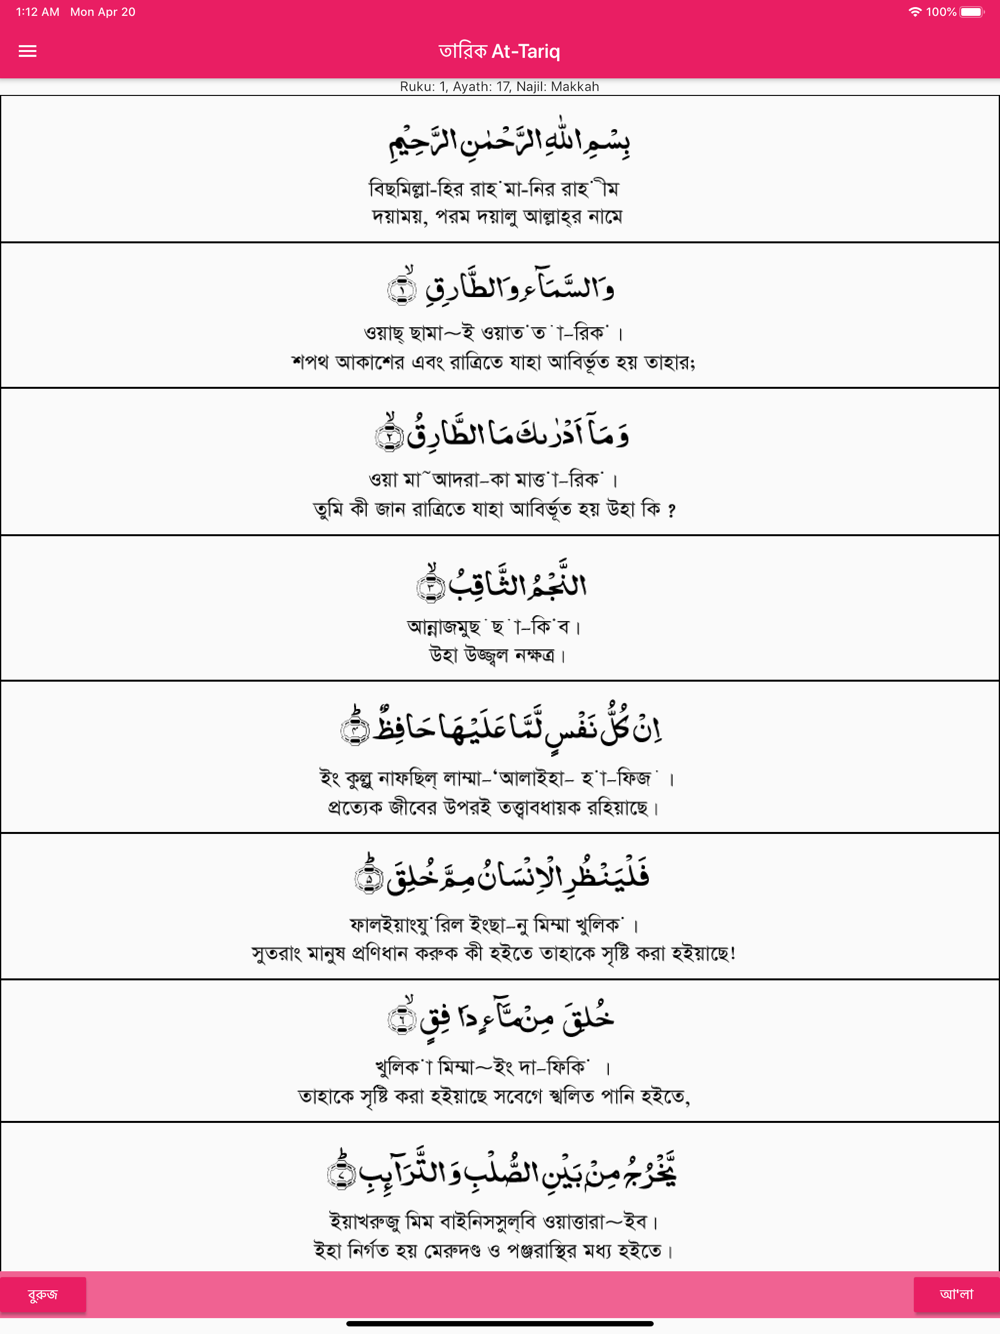 1:12 AM Mon Apr 20 100%
তারিক At-Tariq
Ruku: 1, Ayath: 17, Najil: Makkah
بِسْمِ اللّٰهِ الرَّحْمٰنِ الرَّحِيْمِ
বিছমিল্লা-হির রাহ়্মা-নির রাহ়ীম
দয়াময়, পরম দয়ালু আল্লাহ্‌র নামে
وَالسَّمَآءِ وَالطَّارِقِ ۙ﴿۱﴾
ওয়াছ্ ছামা~ই ওয়াত্'ত'া–রিক'।
শপথ আকাশের এবং রাত্রিতে যাহা আবির্ভূত হয় তাহার;
وَمَآ اَدْرٰىكَ مَا الطَّارِقُ ۙ﴿۲﴾
ওয়া মা~আদরা–কা মাত্ত'া–রিক'।
তুমি কী জান রাত্রিতে যাহা আবির্ভূত হয় উহা কি ?
النَّجْمُ الثَّاقِبُ ۙ﴿۳﴾
আন্নাজমুছ'ছ'া–কি'ব।
উহা উজ্জ্বল নক্ষত্র।
اِنْ كُلُّ نَفْسٍ لَّمَّا عَلَيْهَا حَافِظٌ ؕ﴿۴﴾
ইং কুল্লু নাফছিল্ লাম্মা–‘আলাইহা– হ'া–ফিজ'।
প্রত্যেক জীবের উপরই তত্ত্বাবধায়ক রহিয়াছে।
فَلْيَنْظُرِ الْاِنْسَانُ مِمَّ خُلِقَ ؕ﴿۵﴾
ফালইয়াংযু'রিল ইংছা–নু মিম্মা খুলিক'।
সুতরাং মানুষ প্রণিধান করুক কী হইতে তাহাকে সৃষ্টি করা হইয়াছে!
خُلِقَ مِنْ مَّآءٍ دَا فِقٍ ۙ﴿۶﴾
খুলিক'া মিম্মা~ইং দা–ফিকি' ।
তাহাকে সৃষ্টি করা হইয়াছে সবেগে স্খলিত পানি হইতে,
يَّخْرُجُ مِنْۢ بَيْنِ الصُّلْبِ وَالتَّرَآئِبِ ؕ﴿۷﴾
ইয়াখরুজু মিম বাইনিসসুল্‌বি ওয়াত্তারা~ইব।
ইহা নির্গত হয় মেরুদণ্ড ও পঞ্জরাস্থির মধ্য হইতে।
বুরুজ
আ'লা